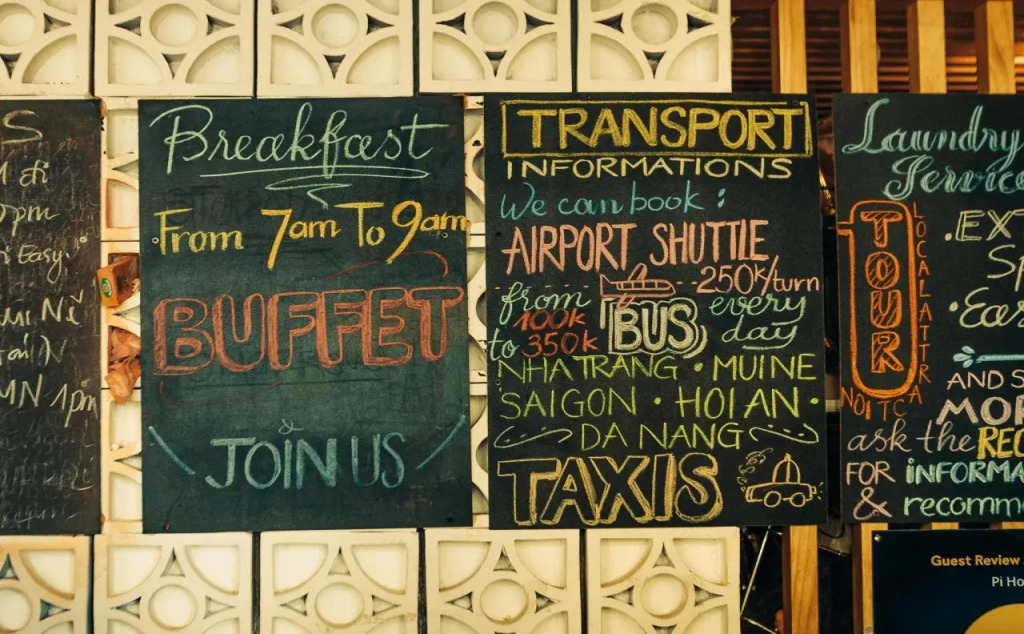 S
pm
Easy.
MN 1pm
Breakfast
From 7am To 9am
BUFFET
&
JOIN US
TRANSPORT
INFORMATIONS
We can book :
AIRPORT SHUTTLE
250k/turn
from 100k to 350k
BUS
every day
NHA TRANG • MUINE
SAIGON • HOI AN •
DA NANG
TAXIS
Laundry
Service
TOUR
LOCAL
.EX
Sp
• Eas
AND S
MOR
ask the REC
FOR INFORMA
& recomm
Guest Review
Pi Ho